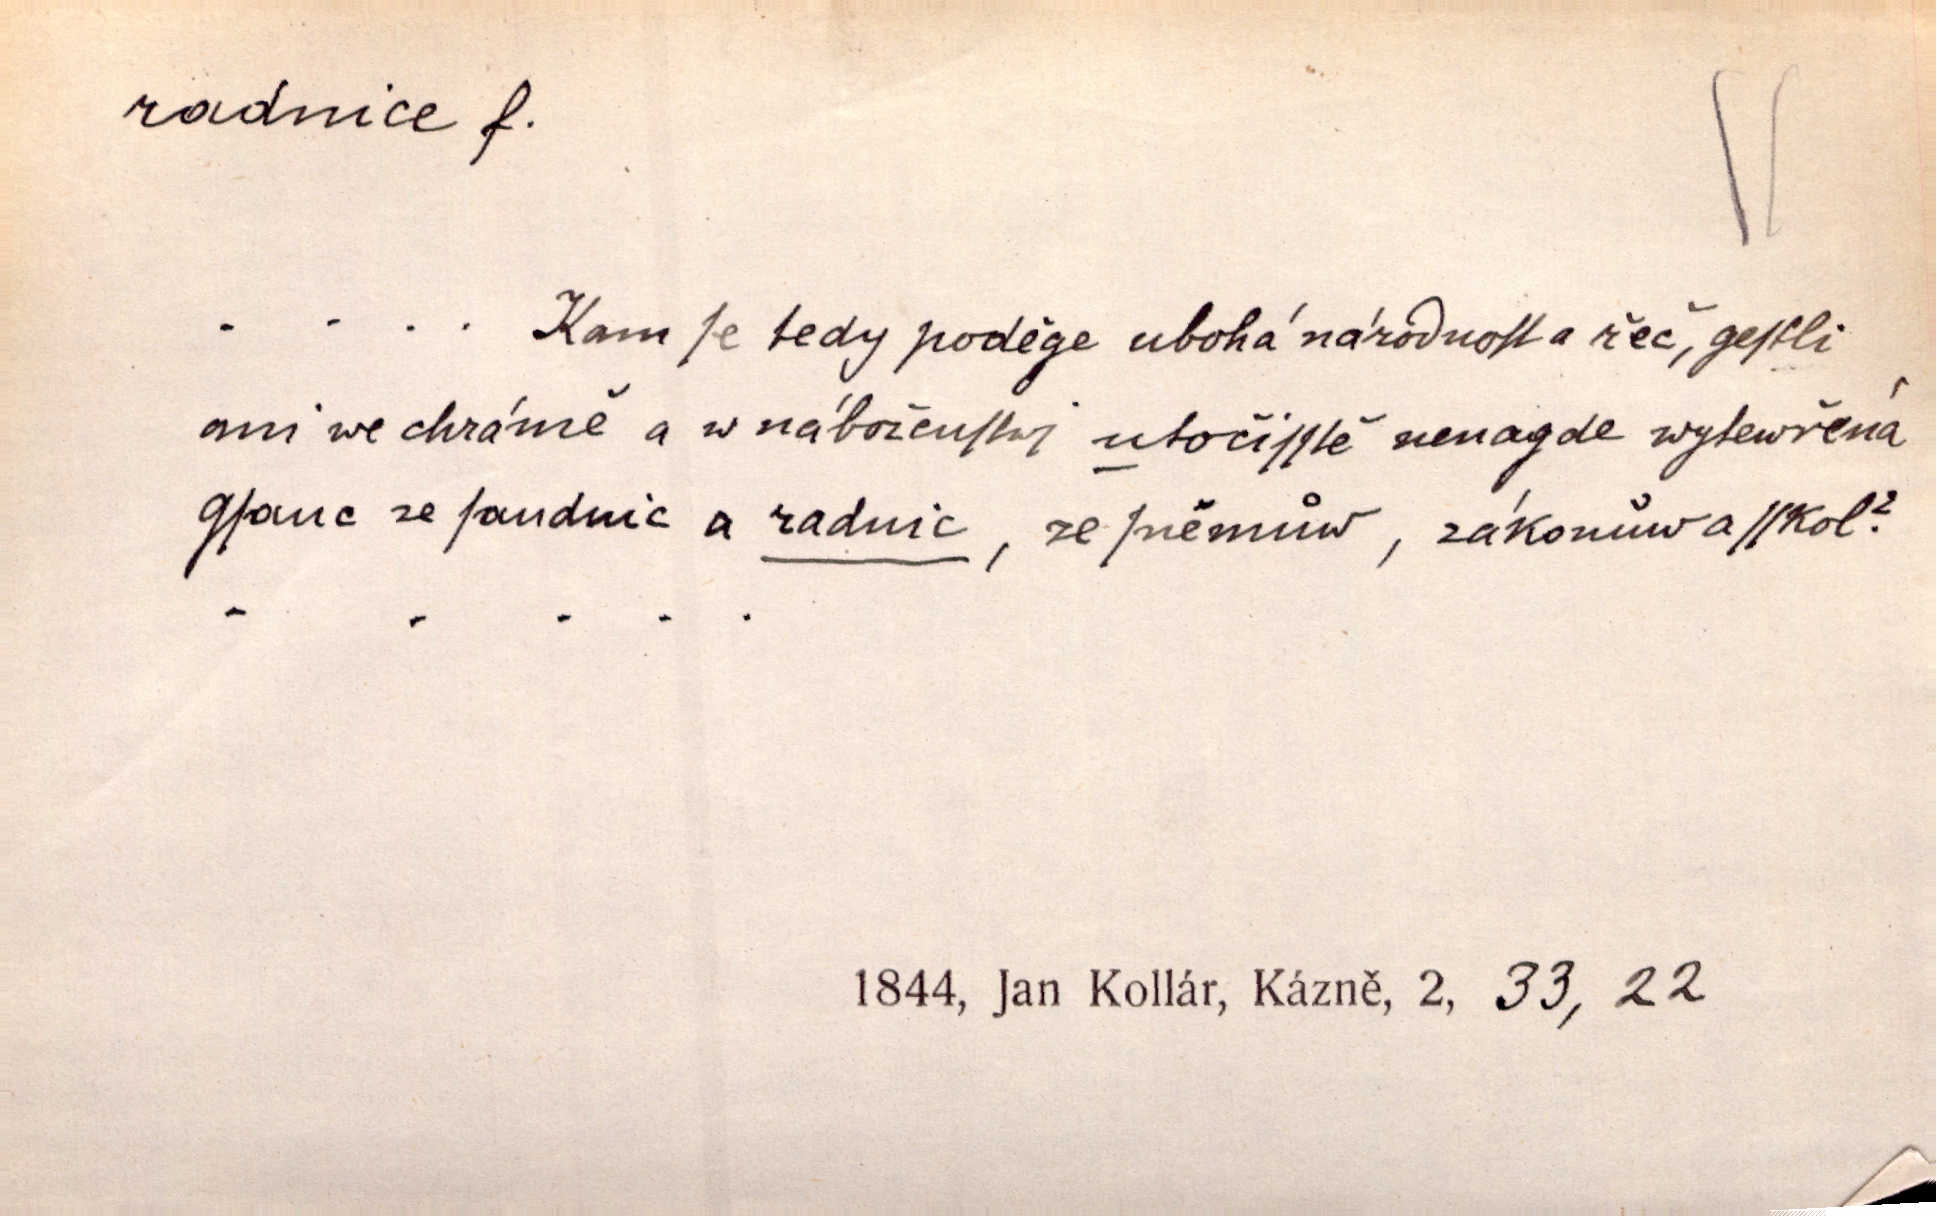 radnice f.
. . . . Kam ſe tedy poděge ubohá národnoſt a řeč, geſtli
ani we chrámě a w náboženſtwj utočiſſtě nenagde wytewřená
gſauc ze ſaudnic a radnic, ze ſněmůw, zákonůw a ſſkol?
. . . . .
1844, Jan Kollár, Kázně, 2, 33, 22